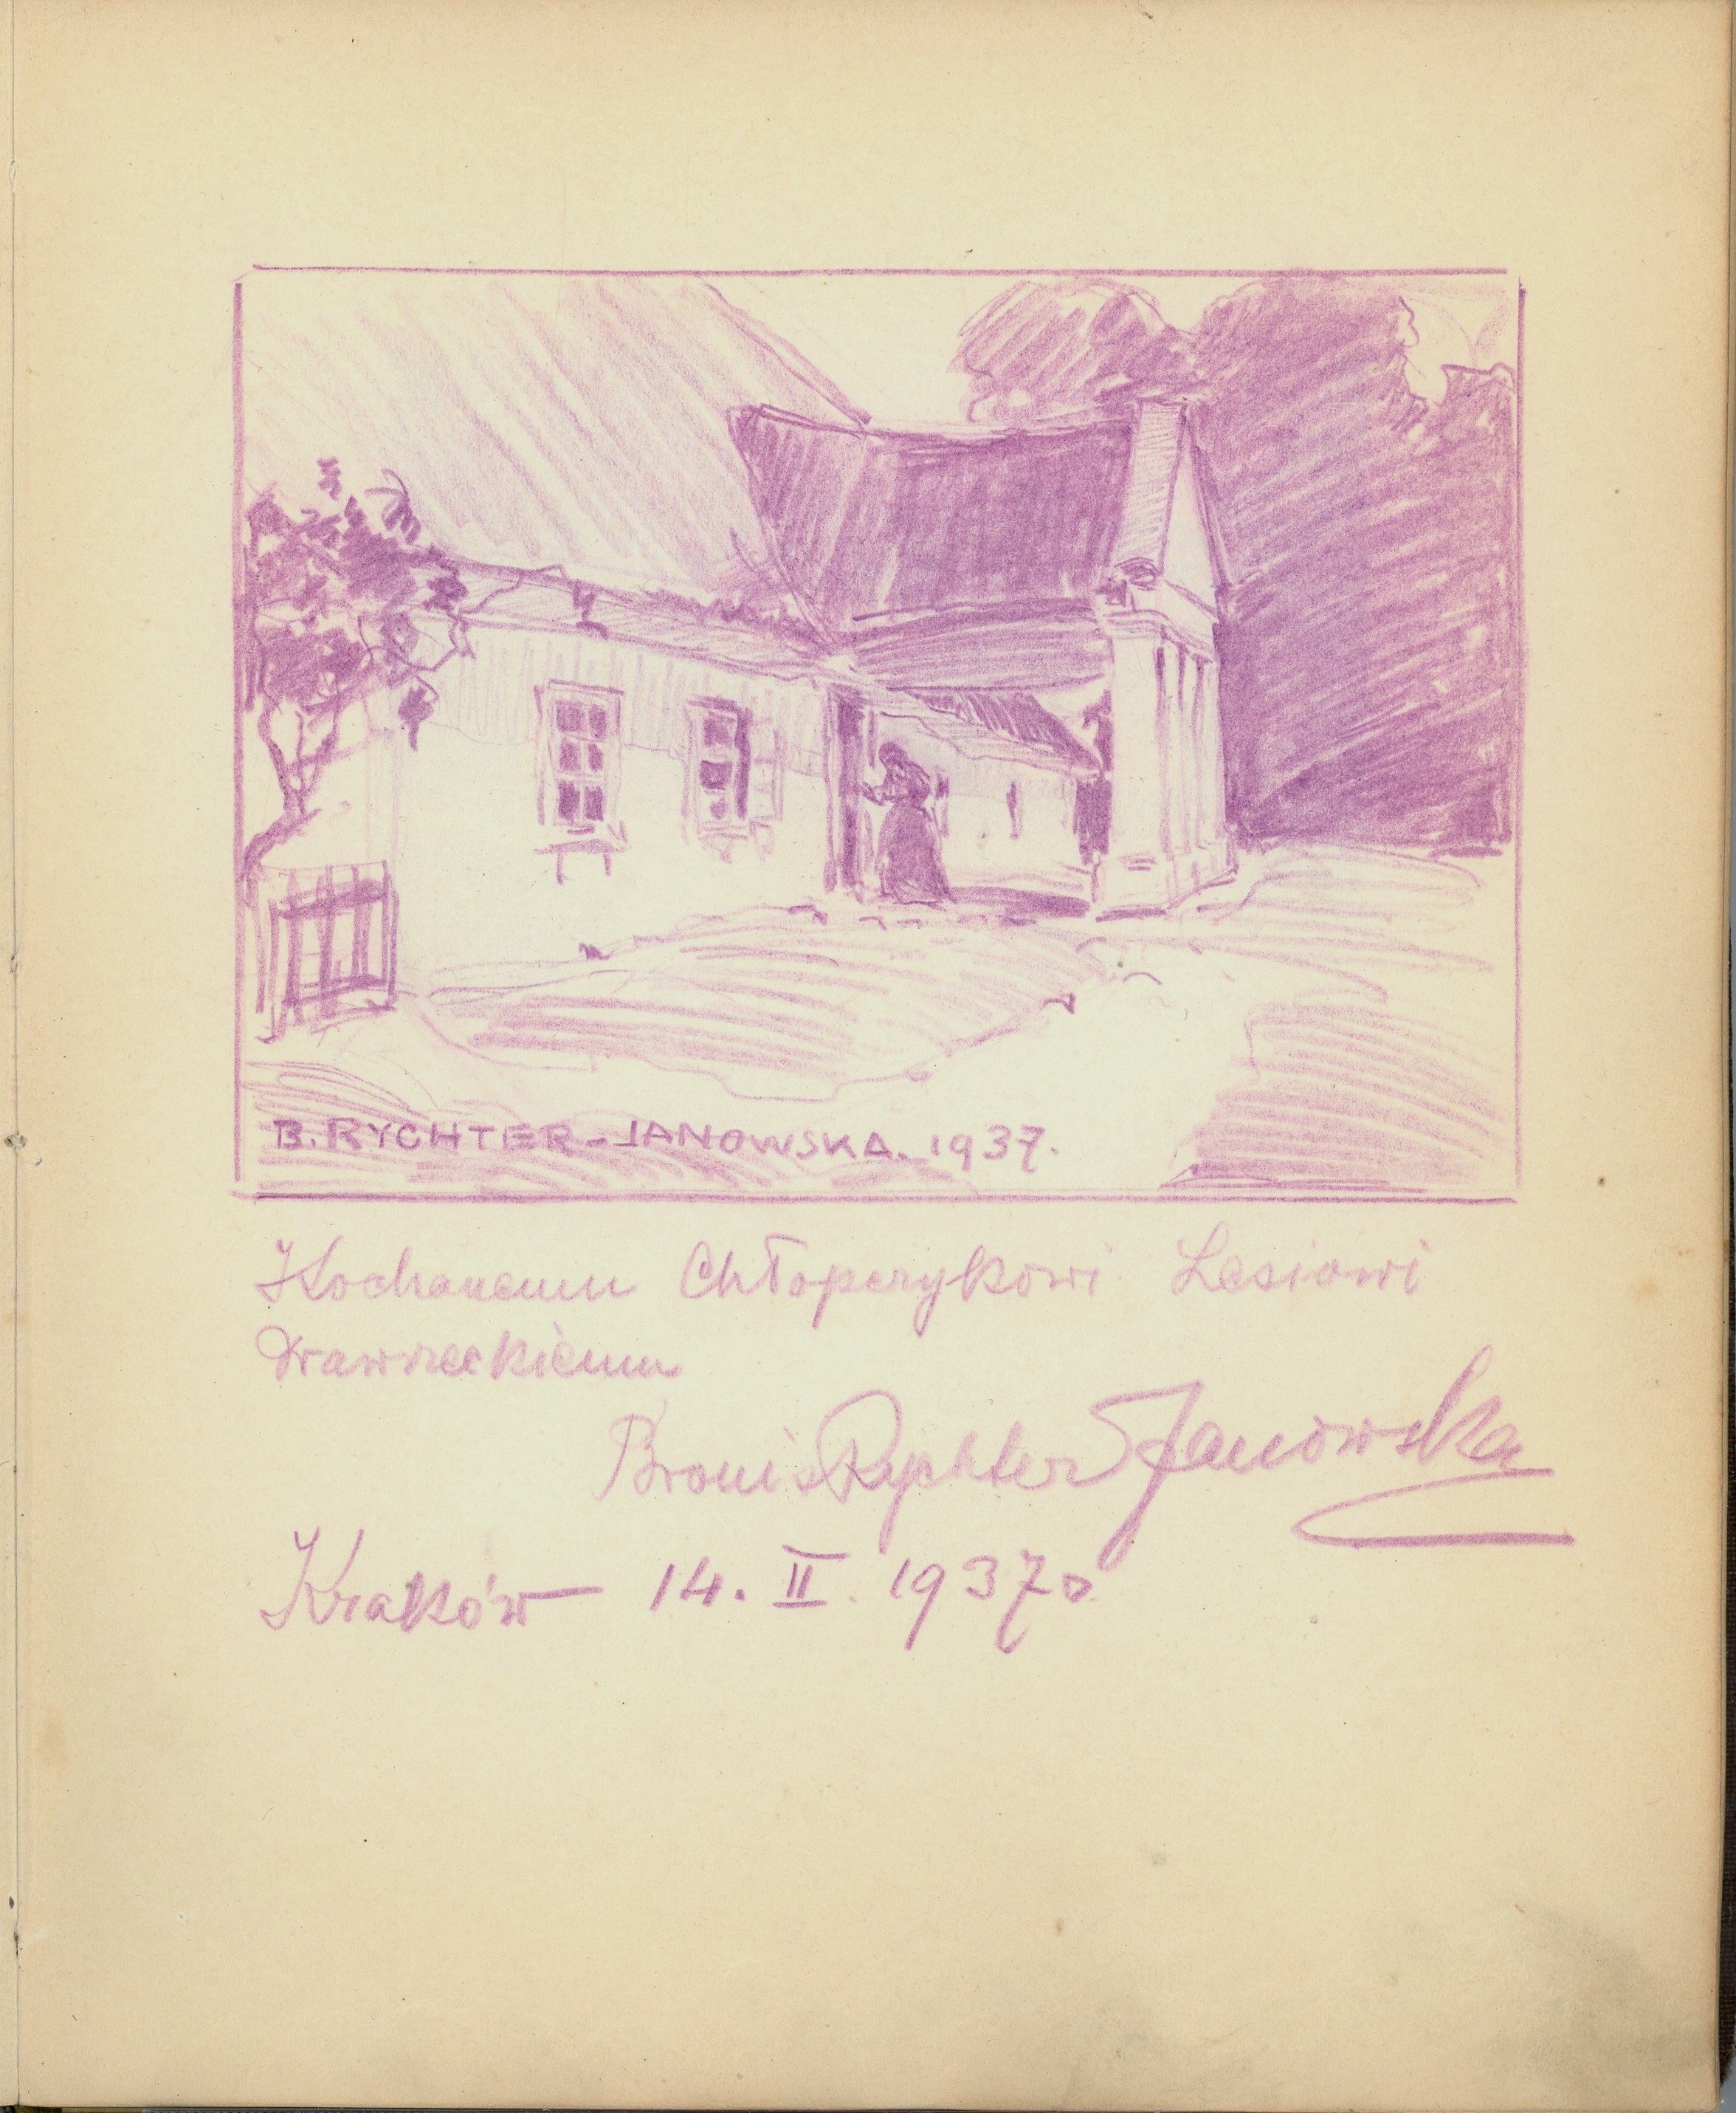 B. RYCHTER-JANOWSKA. 1937.
Kochanemu Chłopczykowi Lesiowi
Bronis Rychter Janowska
Kraków — 14. II. 1937 r